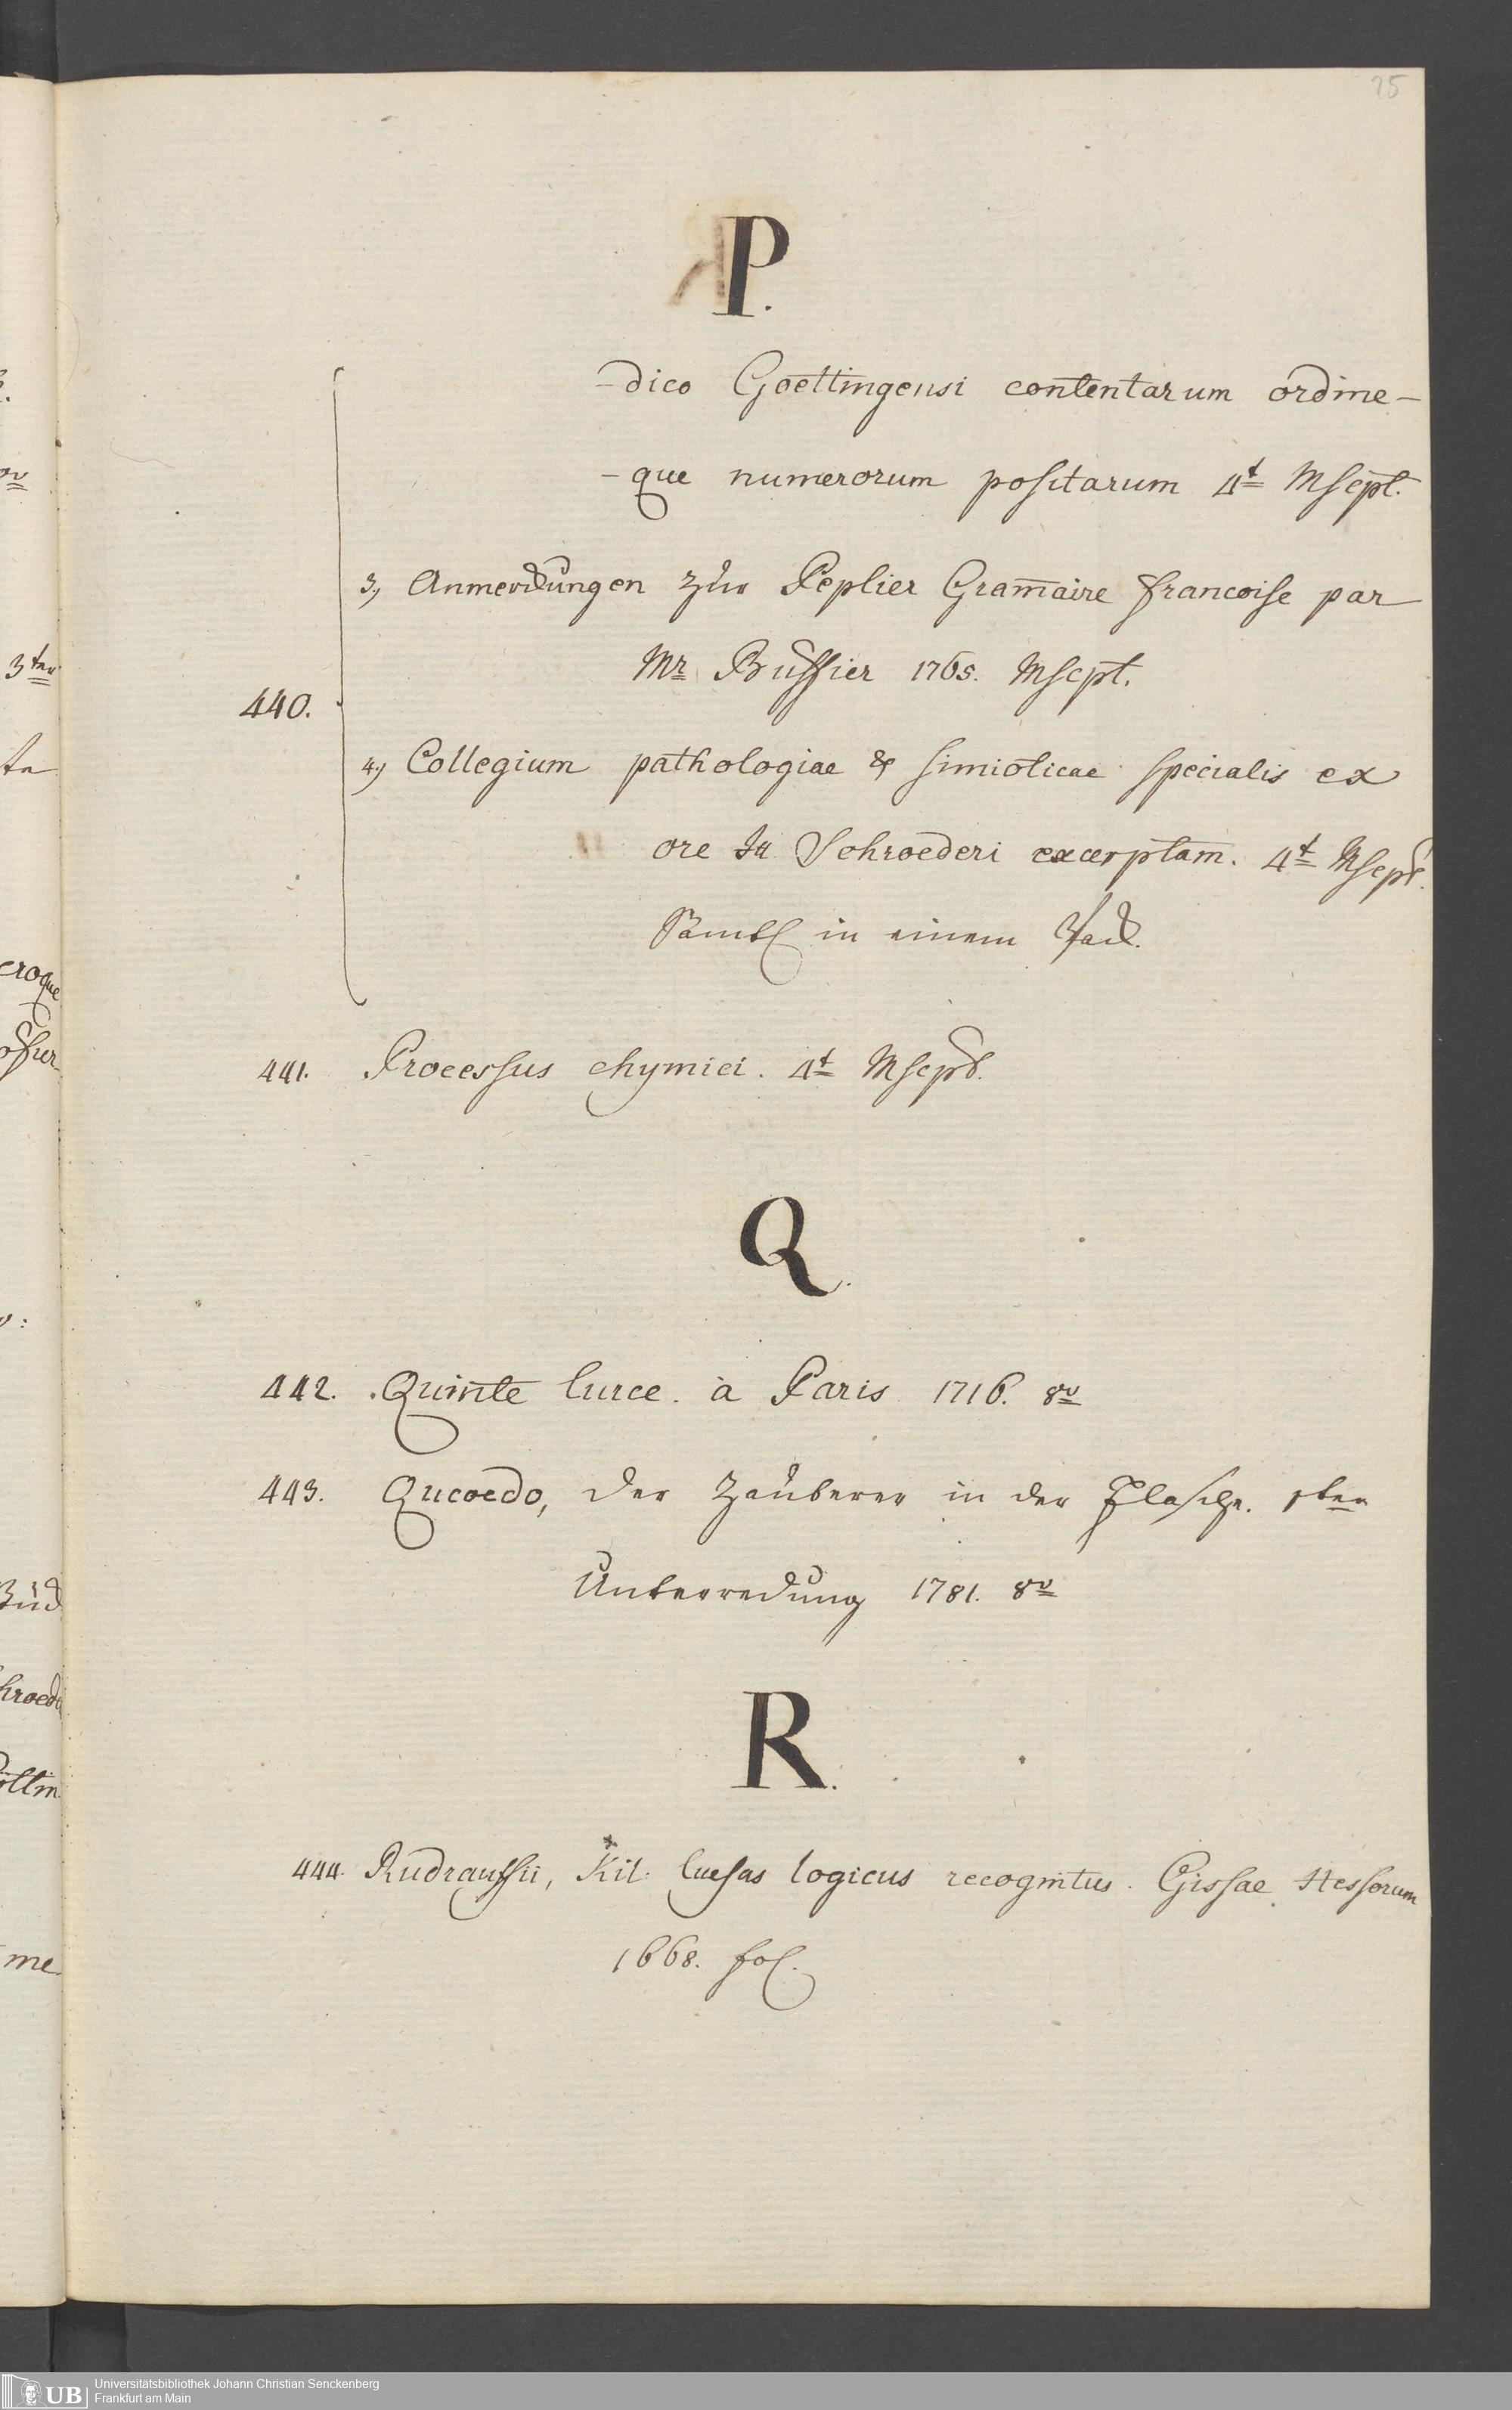 25
P.
-dico Goettingensi contentarum ordine-
-que numerorum positarum 4t Mscpt.
3.) Anmerckungen zur Peplier Gram̅aire francoise par
Mr Buffier 1765. Mscpt.
440.
4.) Collegium pathologiae & simioticae specialis ex
ore Schroederi excerptam. 4t Mscpt.
Sämtl in einem Pack.
441. Processus chymici. 4t Mscpt.
Q.
442. Quinte Curce. à Paris 1716. 8v
443. Qucoedo, der Zauberer in der Flasche. 1ter
Unterredung 1781. 8v
R.
444. Rudrauffii, Kil. Cursus logicus recognitus. Gissae Hessorum
1668. fol.
3ter
te
croque
hroed
me
UB
Universitätsbibliothek Johann Christian Senckenberg
Frankfurt am Main